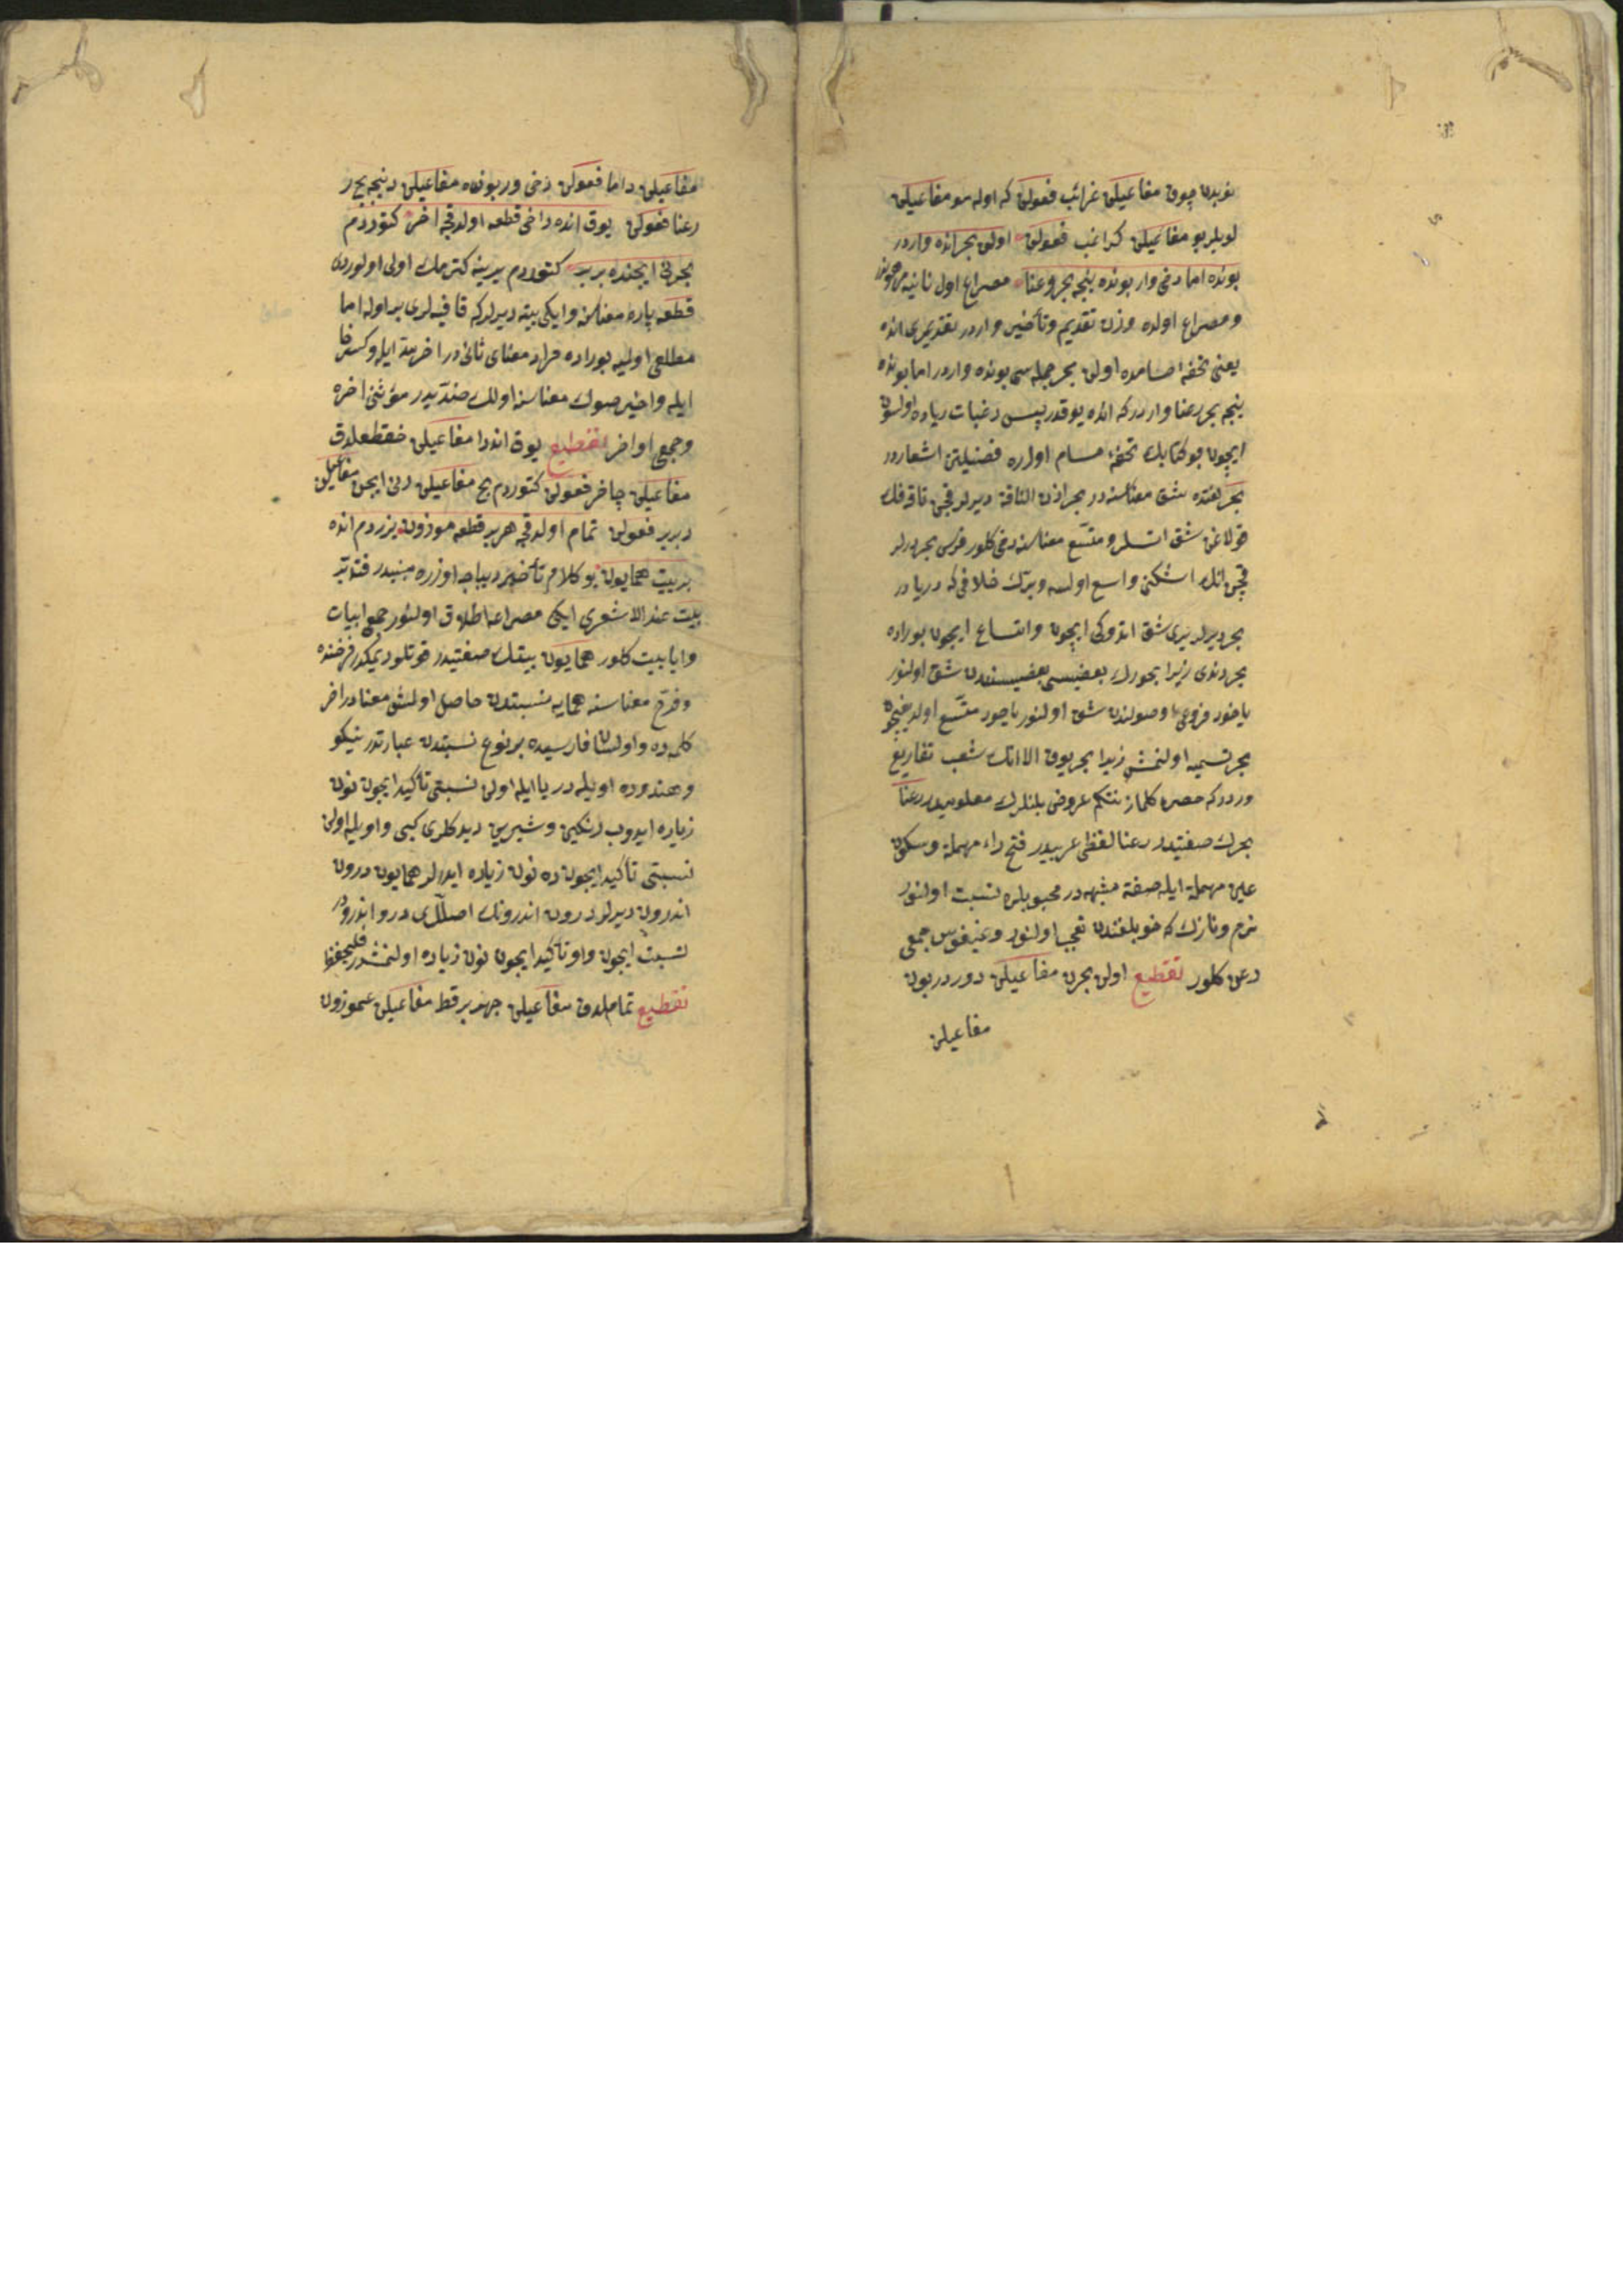 نوبدن چوق مفاعیلن غرائب فعولن که اوله مو مفاعیلن
لویلر بو مفاعیلن کرا غب فعولن اولن بحر انده واردر
بونده اما دخی وار بونده نیجه بحر رعنا مصراع اول ثانیه مرهوندر
ومصراع اولده وزن تقدیم وتأخیر واردر تقدیری انده
یعنی تحفهٔ حسامده اولن بحر جمله سی بونده واردر اما بونده
نیجه بحر رعنا واردر که انده یوقدر پس رغبات زیاده اولسون
ایچون بو کتابك تحفهٔ حسام اولره فضیلتن اشعاردر
بحر لغتده شق معناسنه در بحر اذن الناقة دیرلر قچن ناقه نك
قولاغن شق اتسلر ومتسع معناسنه دخی کلور فرس بحر دیرلر
قچن انك اشکنی واسع اولسه وبرك خلافی که دریا در
بحر دیرلر یری شق اتدوکی ایچون واتساع ایچون بوراده
بحر دندی زیرا بحورك بعضیسی بعضیسندن شق اولنور
یاخود فروعی اوصولندن شق اولنور یاخود متسع اولدیغیچون
بحر تسمیه اولنمش زیرا بحر یوق الا انك شعب تفاریع
وردر که حصره کلماز نتکم عروض بلنلرك معلومیدر رعنا
بحرك صفتیدر رعنا لفظی عربیدر فتح راء مهملة وسکون
عین مهملة ایله صفة مشبهه در محبوبلره نسبت اولنور
نرم ونازك که خوبلغندن تعجب اولنور وعنیفوس جمعی
رعن کلور تقطیع اولن بحرن مفاعیلن دوردر بون
مفاعیلن
مفاعیلن داما فعولن دخی وربونده مفاعیلن دنیجه بح ر
رعنا فعولن یوق انده داخی قطعه اولدقچه اخر کتوردم
بحرنی ایچنده بر بر کتوردم یرینه کترمك اولی اولوردی
قطعه پاره معناسنه وایکی بیته دیرلر که قافیه لری بر اوله اما
مطلعی اولیه بوراده مراد معنای ثانی در اخر مد ایله وکسر خا
ایله واخیر صوك معناسنه اولك ضدیدر مؤنثی اخره
وجمعی اواخر تقطیع یوق اندا مفاعیلن خقطعلدق
مفاعیلن چاخر فعولن کتوردم بح مفاعیلن رنی ایچن مفاعیلن
دبربر فعولن تمام اولدقچه هر بر قطعه موزون یزردم انده
بر بیت همایون بو کلام تأخیر دیباجه اوزره مبنیدر فتدبر
بیت عند الاشعری ایکی مصراعه اطلاق اولنور جمعی ابیات
وایابیت کلور همایون بیتك صفتیدر قوتلو دیمکدر فرخنده
وفرخ معناسنه همایه نسبتدن حاصل اولمش معنادر اخر
کلمه ده واو لسان فارسیده بر نوع نسبتدن عبارتدر نیکو
وهندوده اویله در یا ایله اولن نسبتی تأکید ایچون نون
زیاده ایدوب رنکین وشیرین دیدکلری کبی واو ایله اولن
نسبتی تأکید ایچون ده نون زیاده ایدرلر همایون درون
اندرون دیرلر درون اندرونك اصللری درو اندرودر
نسبت ایچون واو تأکید ایچون نون زیاده اولنمشدر فلیحفظ
تقطیع تماملدق مفاعیلن چهر برقط مفاعیلن عموزون